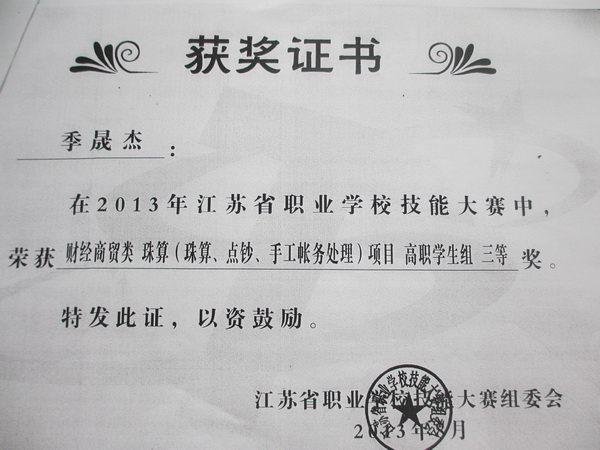 获奖证书
季晟杰：
在2013年江苏省职业学校技能大赛中，
荣获 财经商贸类 珠算（珠算、点钞、手工帐务处理）项目 高职学生组 三等 奖。
特发此证，以资鼓励。
江苏省职业学校技能大赛组委会
2013年 月